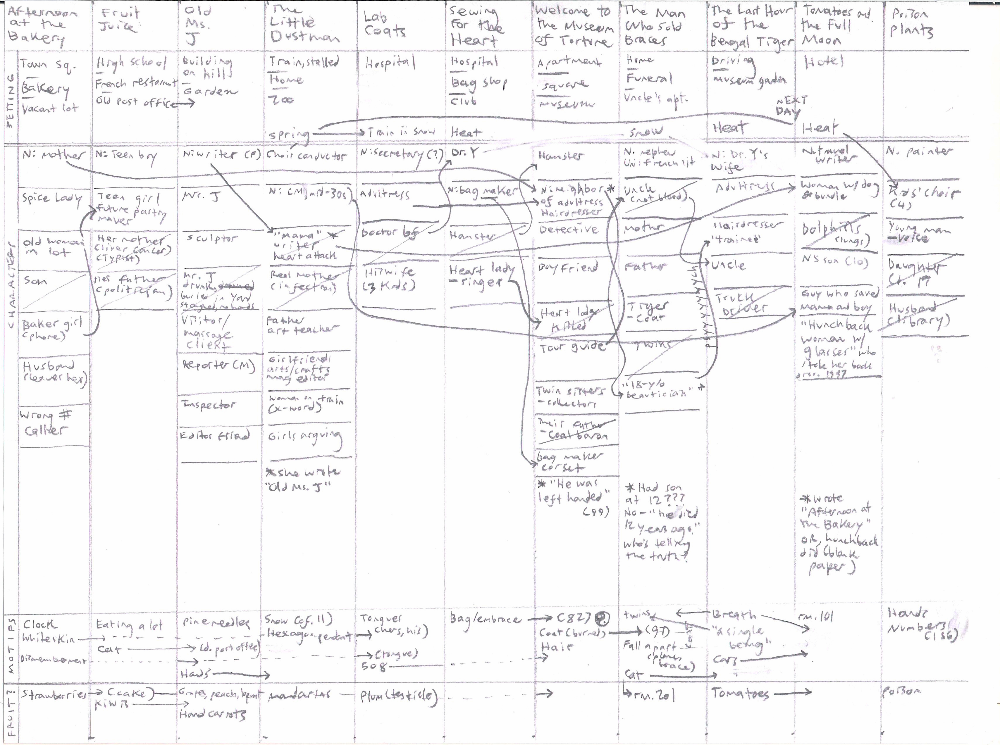 Afternoon at the Bakery
Fruit Juice
Old Ms. J
The Little Dustman
Lab Coats
Sewing For the Heart
Welcome to the Museum of Torture
The Man Who Sold Braces
The Last Hour of the Bengal Tiger
Tomatoes and the Full Moon
Poison Plants
SETTING
Town sq.
Bakery
Vacant lot
High school
French restaurant
Old post office
Building on hills
Garden
Train, stalled
Home
Zoo
spring
Hospital
Train in snow
Hospital
Bag shop
Club
Heat
Apartment
square
museum
Home
Funeral
Uncle's apt.
snow
Driving
Museum garden
Heat
Hotel
NEXT DAY
Heat
CHARACTERS
N: mother
Spice Lady
Old woman in lot
Son
Baker girl (phone)
Husband (leaves her)
Wrong # caller
N: Teen boy
Teen girl future pastry maker
Her mother (liver cancer) (typist)
Her father (politician)
N: writer (F)
Mrs. J
Sculptor
Mr. J
drunk
Visitor/ massage client
Reporter (M)
Inspector
Editor friend
Choir conductor
N: (M, mid-30s)
"Mama" *
writer
heart attack
Real mother (infection)
Father art teacher
Girlfriend: arts/crafts mag editor
Woman on train (x-word)
Girls arguing
* she wrote "Old Ms. J"
N: secretary (?)
Adultress
Doctor bf
His wife (3 kids)
Dr. Y
N: bag maker
Hamster
Heart lady - singer
Hamster
N: neighbor *
of adultress
Hairdresser
Detective
Boyfriend
Heart lady killed
Tour guide
Twin sisters - collectors
Their father - Coat baron
bag maker corset
* "He was left handed" (99)
N. nephew
Uni: French lit
Uncle (not blood)
Mother
Father
Tiger - coat
Twins
"18-y/o beautician" *
* Had son at 12???
No - "he died 12 years ago."
Who's telling the truth?
N: Dr. Y's wife
Adultress
Hairdresser "trained"
Uncle
Truck Driver
N. travel writer
Woman w/ dog & bundle
Dolphins (lungs)
N's son (10)
Guy who saved mama and boy
"Hunchback woman w/ glasses" who stole her book
* Wrote "Afternoon at the Bakery"
OR, hunchback did (blank paper)
N. painter
Kids' choir (4)
Young man - voice
Daughter
Husband (library)
MOTIFS
Clock
White skin
Dismemberment
Eating a lot
Cat
Pine needles
(old post office)
Hands
Snow (cf. 11)
Hexagon pendant
Tongues (hers, his)
(tongue)
508
Bag/embrace
(82)
Coat (buried)
Hair
twins
(97)
Fall apart
Cat
Breath
"A single being"
Cars
rm. 101
Hands
Numbers (156)
FRUIT?
Strawberries
(cake)
Kiwis
Grapes, peach, loquat
Hand carrots
Mandarins
Plum (testicle)
rm. 201
Tomatoes
Poison